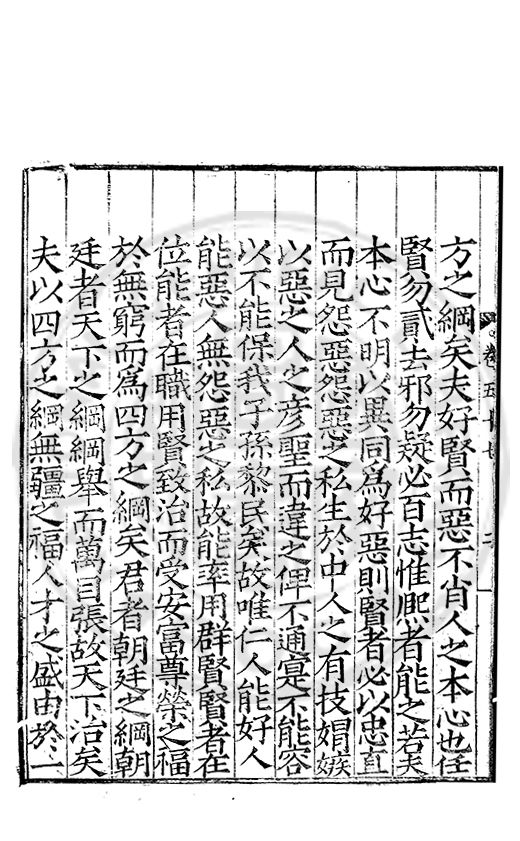 方之綱矣夫好賢而惡不肖人之本心也任
賢勿貳去邪勿疑必百志惟熈者能之若夫
本心不明以異同為好惡則賢者必以忠直
而見怨惡怨惡之私生於中人之有技媢嫉
以惡之人之彦聖而違之俾不通寔不能容
以不能保我子孫黎民矣故唯仁人能好人
能惡人無怨惡之私故能率用群賢賢者在
位能者在職用賢致治而受安富尊榮之福
於無窮而為四方之綱矣君者朝廷之綱朝
廷者天下之綱綱舉而萬目張故天下治矣
夫以四方之綱無疆之福人才之盛由於一
卷五十七